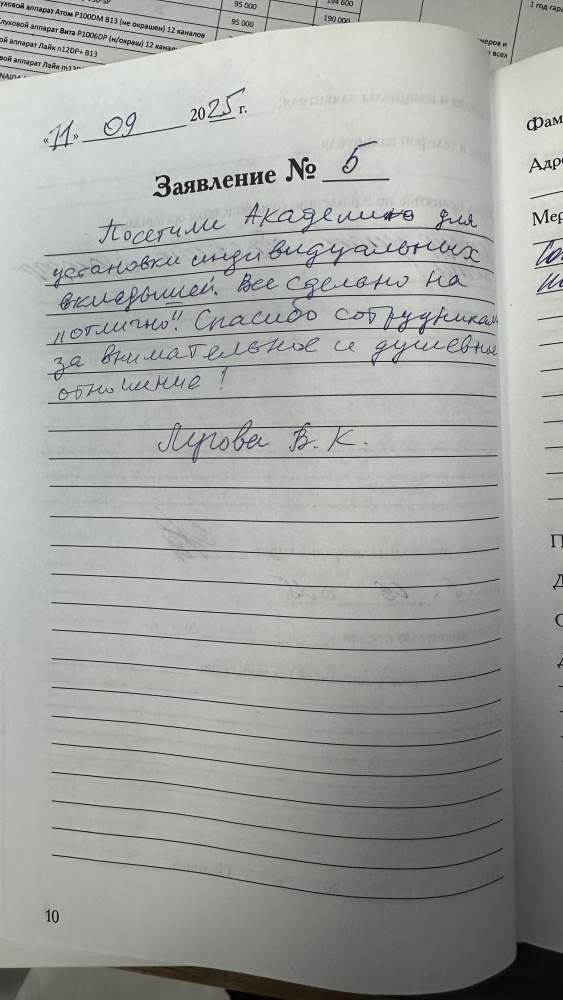 95 000
194 600
1 год гара
луховой аппарат Атом P100DM B13 (не окрашен) 12 каналов
95 000
190 000
Слуховой аппарат Вита P1006DP (н/окраш) 12 канало
ой аппарат Лайк n12DP+ B13
вой аппарат Лайк m13
«11» 09 2025 г.
Заявление № 5
Посетили Академию для
установки индивидуальных
вкладышей. Все сделано на
"отлично". Спасибо сотрудникам
за внимательное и душевное
отношение!
В. К.
10
Фам
Адре
Мер